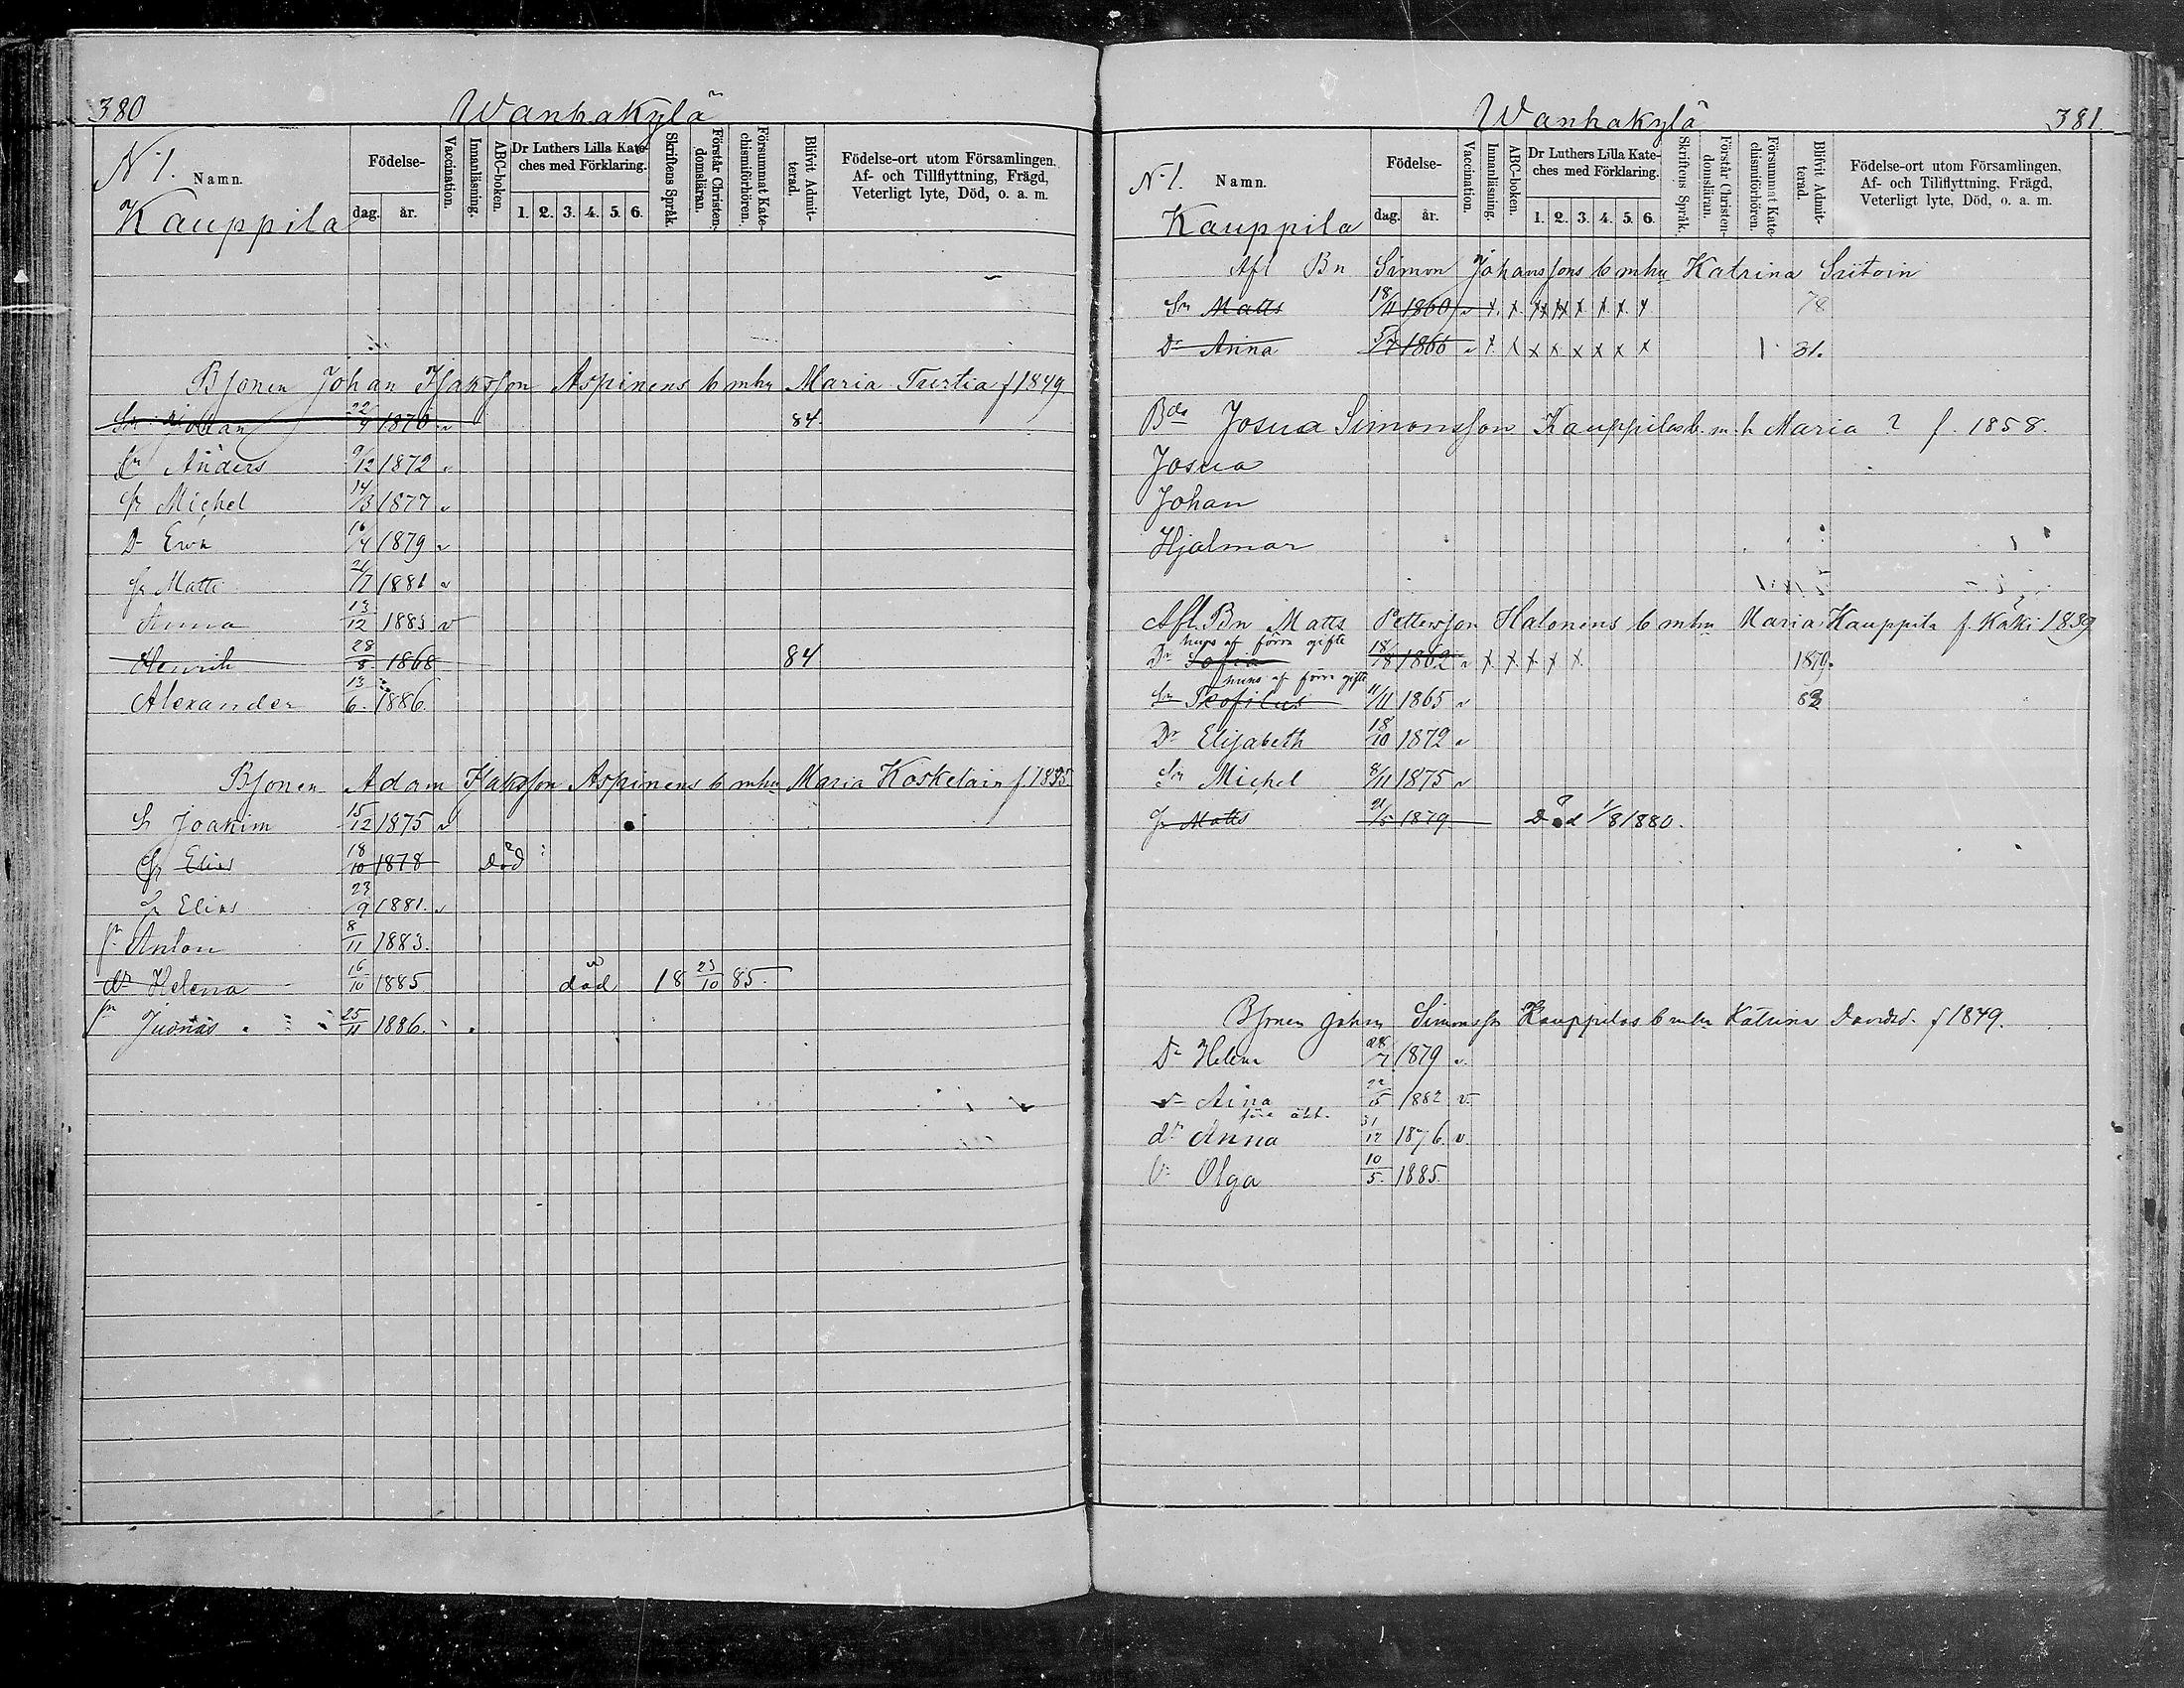 380
Wanhakylä
N 1.
Namn.
Kauppila
Födelse-
dag. år.
Vaccination.
Innanläsning.
ABC-boken.
Dr Luthers Lilla Kate-
ches med Förklaring.
1. 2. 3. 4. 5. 6.
Skriftens Språk.
Förstår Christen-
domsläran.
Försummat Kate-
chismiförhören.
Blifvit Admit-
terad.
Födelse-ort utom Församlingen,
Af- och Tillflyttning, Frägd,
Veterligt lyte, Död, o. a. m.
Bsonen Johan Isaksson Aspinens b mhu Maria Turtia f 1849.
Sn Johan 22/4 1870 v 84.
Sn Anders 9/12 1872 v
Sn Michel 14/3 1877 v
Dr Eva 16/4 1879 v
Sn Matts 21/7 1881 v
Anna 13/12 1883 v
Henrik 28/5 1868 84
Alexander 13/6 1886.
Bsonen Adam Isaksson Aspinens b mhu Maria Koskelain f. 1855.
Sn Joakim 15/12 1875 v
Sn Elias 18/10 1878 död
Sn Elias 23/9 1881. v
sn Anton 8/11 1883.
dr Helena 16/10 1885. död 18 23/10 85.
sn Juonas 25/11 1886.
Wanhakylä
381.
N 1.
Namn.
Kauppila
Födelse-
dag. år.
Vaccination.
Innanläsning.
ABC-boken.
Dr Luthers Lilla Kate-
ches med Förklaring.
1. 2. 3. 4. 5. 6.
Skriftens Språk.
Förstår Christen-
domsläran.
Försummat Kate-
chismiförhören.
Blifvit Admit-
terad.
Födelse-ort utom Församlingen,
Af- och Tillflyttning, Frägd,
Veterligt lyte, Död, o. a. m.
Afl Bn Simon Johanssons b mhu Katrina
Sn Matts 18/11 1860 v x x xx xx x x x x 78
Dr Anna 5/7 1866 v x x x x x x x x 1 31.
Bds Josua Simonsson Kauppilas b. m. h Maria ? f. 1858.
Josua
Johan
Hjalmar
Afl. Bn Matts Petterson Halonens b mhu Maria Kauppila f. Käki 1839
hans af förra gifte
Dr Sofia 18/8 1862 v x x x x x 1879.
hans af förra gifte
Sn Teofilus 11/11 1865 v 83
Dr Elisabeth 18/10 1872 v
Sn Michel 8/11 1875 v
Sn Matts 21/5 1879 Död 1/8 1880.
Bsonen Johan Simonssn Kauppilas b mhu Katrina Davidsd. f 1849.
Dr Helena 28/7 1879 v.
dr Aina 22/5 1882 v.
före äkt.
dr Anna 31/12 1876. v.
Dr Olga 10/5 1885.